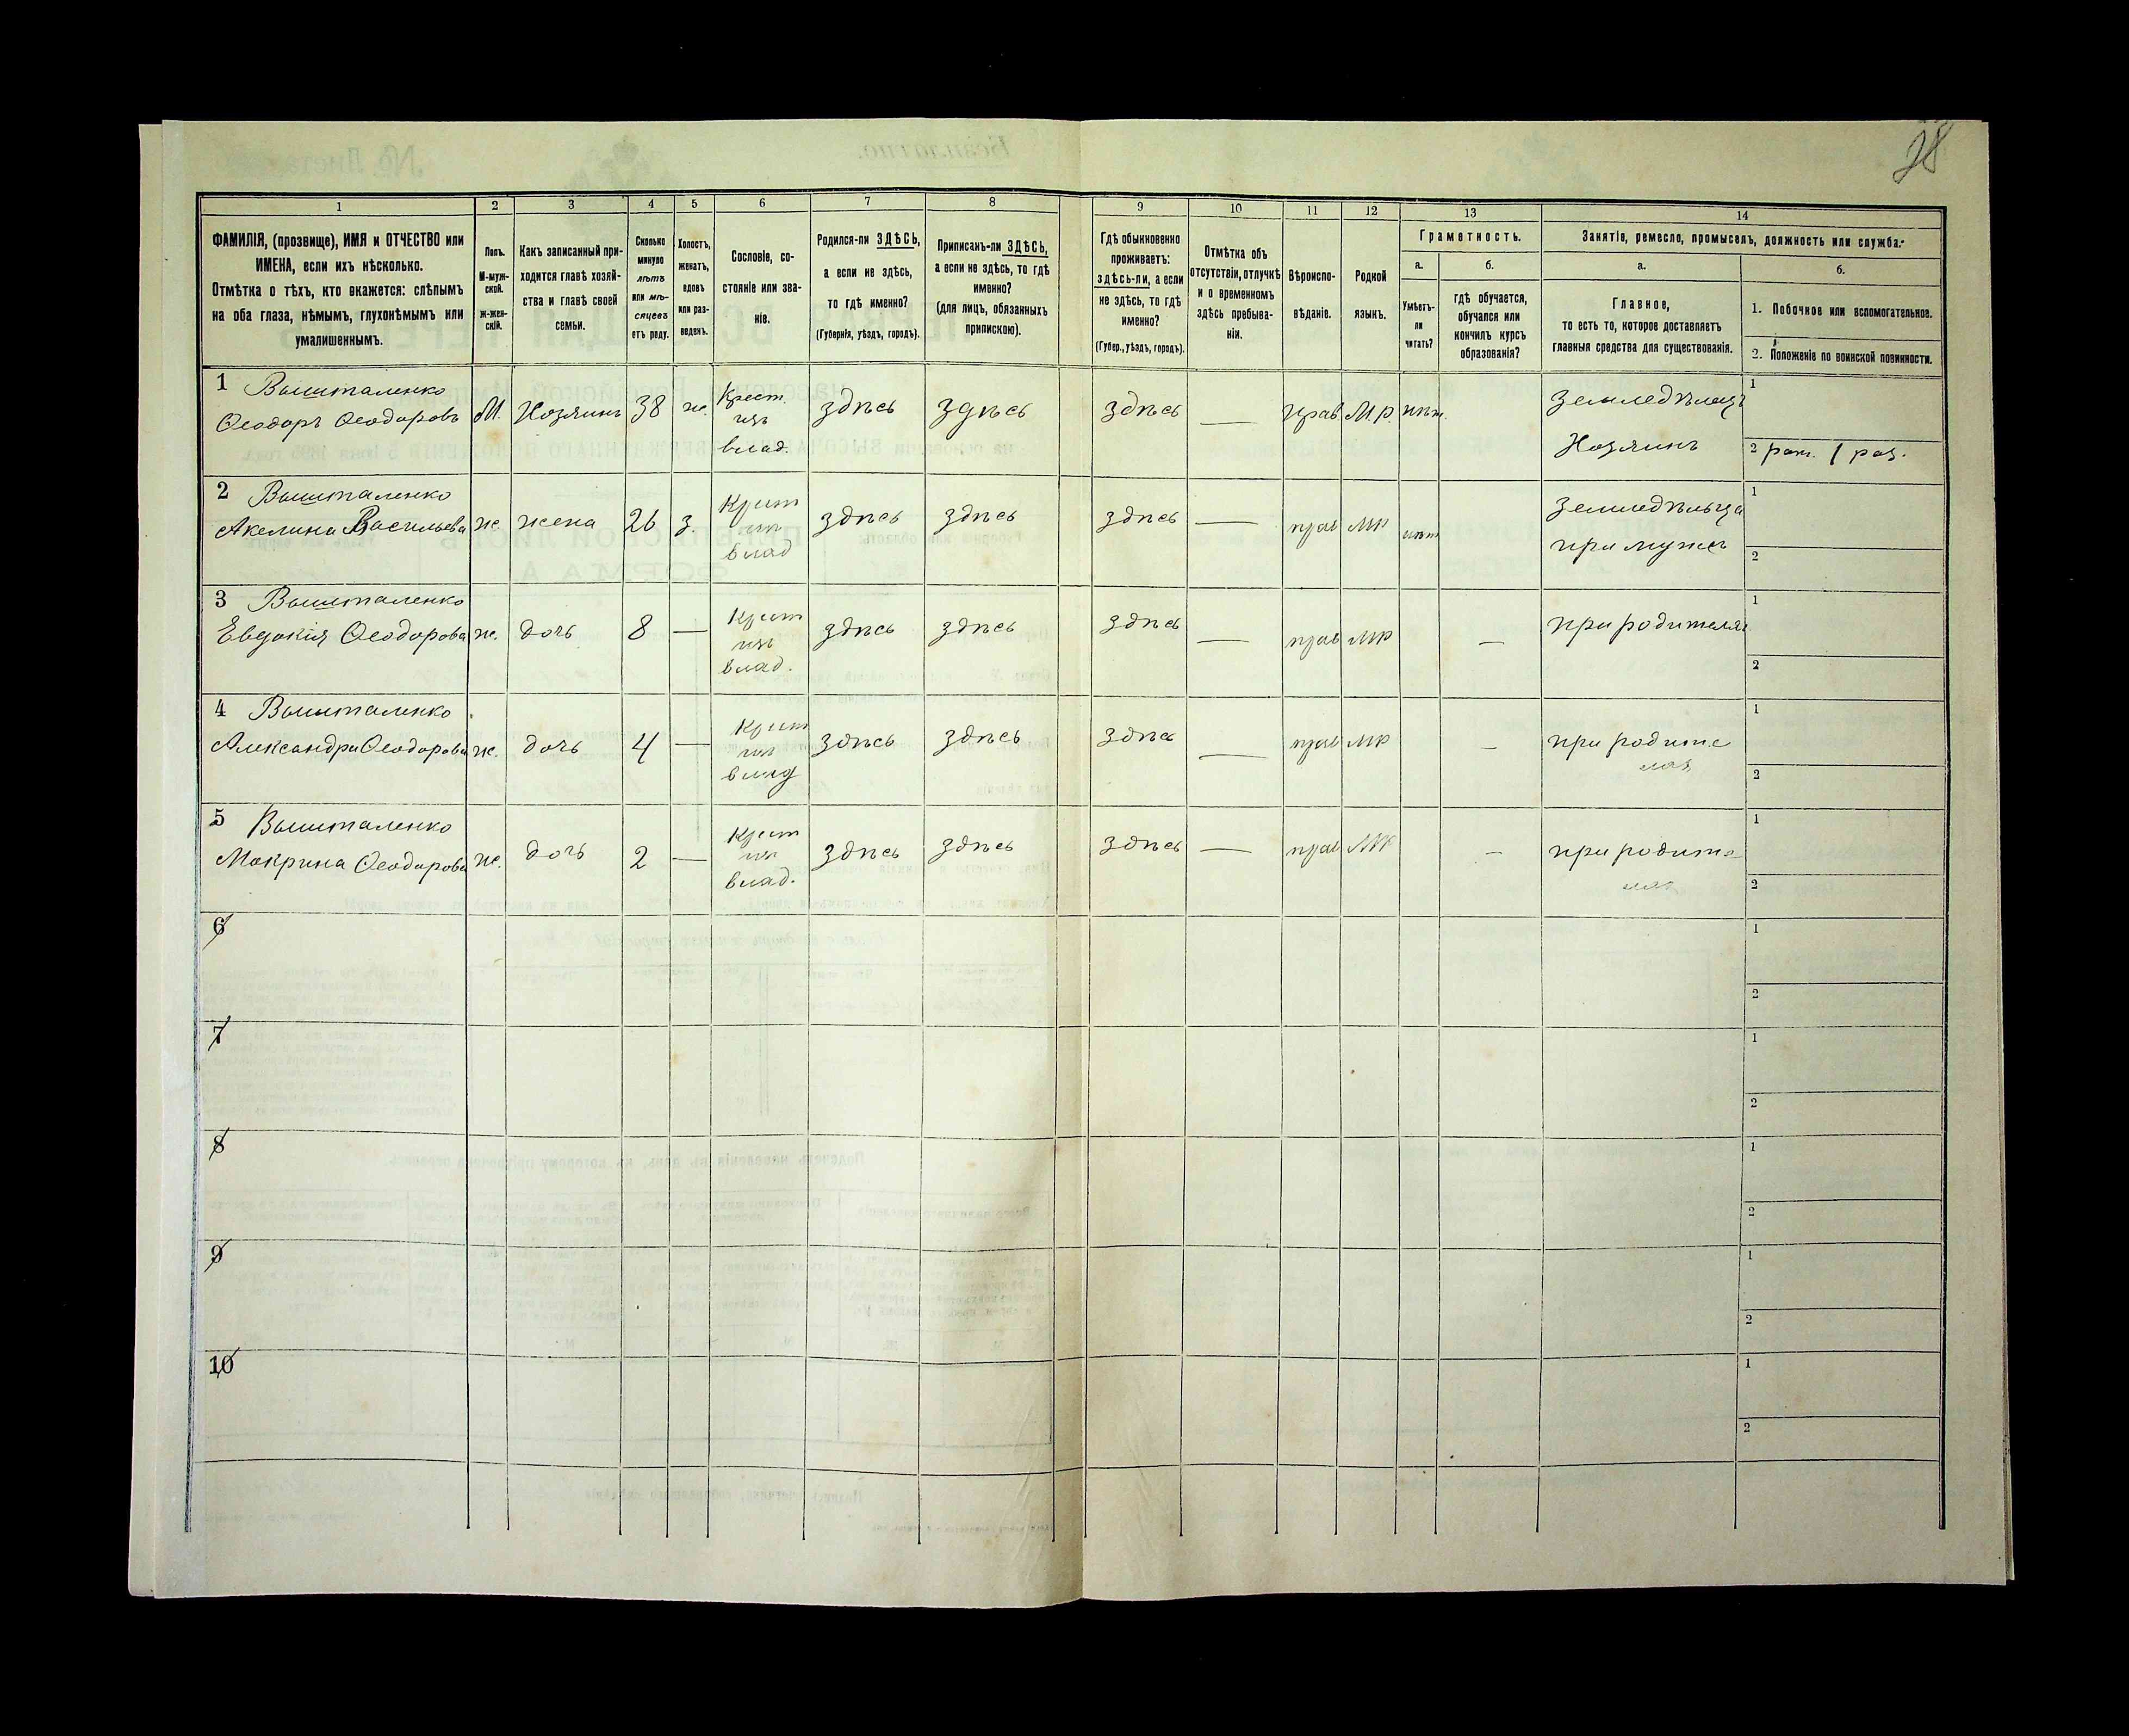 28
1 2 3 4 5 6 7 8 9 10 11 12 13 14
ФАМИЛІЯ, (прозвище), ИМЯ и ОТЧЕСТВО или
ИМЕНА, если ихъ нѣсколько.
Отмѣтка о тѣхъ, кто окажется: слѣпымъ
на оба глаза, нѣмымъ, глухонѣмымъ или
умалишеннымъ.
Полъ.
М-муж-
ской.
Ж-жен-
скій.
Какъ записанный при-
ходится главѣ хозяй-
ства и главѣ своей
семьи.
Сколько
минуло
лѣтъ
или мѣ-
сяцевъ
отъ роду.
Холостъ,
женатъ,
вдовъ
или раз-
веденъ.
Сословіе, со-
стояніе или зва-
ніе.
Родился-ли ЗДѢСЬ,
а если не здѣсь,
то гдѣ именно?
(Губернія, уѣздъ, городъ).
Приписанъ-ли ЗДѢСЬ,
а если не здѣсь, то гдѣ
именно?
(для лицъ, обязанныхъ
припискою).
Гдѣ обыкновенно
проживаетъ:
здѣсь-ли, а если
не здѣсь, то гдѣ
именно?
(Губер., уѣздъ, городъ).
Отмѣтка объ
отсутствіи, отлучкѣ
и о временномъ
здѣсь пребыва-
ніи.
Вѣроиспо-
вѣданіе.
Родной
языкъ.
Грамотность.
а.
Умѣетъ-
ли
читать?
б.
гдѣ обучается,
обучался или
кончилъ курсъ
образованія?
Занятіе, ремесло, промыселъ, должность или служба.
а.
Главное,
то есть то, которое доставляетъ
главныя средства для существованія.
б.
1. Побочное или вспомогательное.
2. Положеніе по воинской повинности.
1 Вышталенко
Ѳеодоръ Ѳеодоровъ М. Хозяинъ 38 ж. Крест. изъ влад. здѣсь здѣсь здѣсь — прав М.р. нѣт. Земледѣлецъ
Хозяинъ
1
2 рат. 1 раз.
2 Вышталенко
Акелина Васильева ж. жена 26 з. Крест из влад здѣсь здѣсь здѣсь — прав МР нѣт Земледѣлица
при мужѣ
1
2
3 Вышталенко
Евдокія Ѳеодорова ж. дочь 8 — Крест изъ влад. здѣсь здѣсь здѣсь — прав МР — при родителях
1
2
4 Вышталенко
Александра Ѳеодорова ж. дочь 4 — Крест из влад здѣсь здѣсь здѣсь — прав МР — при родите
лях
1
2
5 Вышталенко
Макрина Ѳеодорова ж. дочь 2 — Крест из влад. здѣсь здѣсь здѣсь — прав МР — при родите
лях
1
2
6
1
2
7
1
2
8
1
2
9
1
2
10
1
2